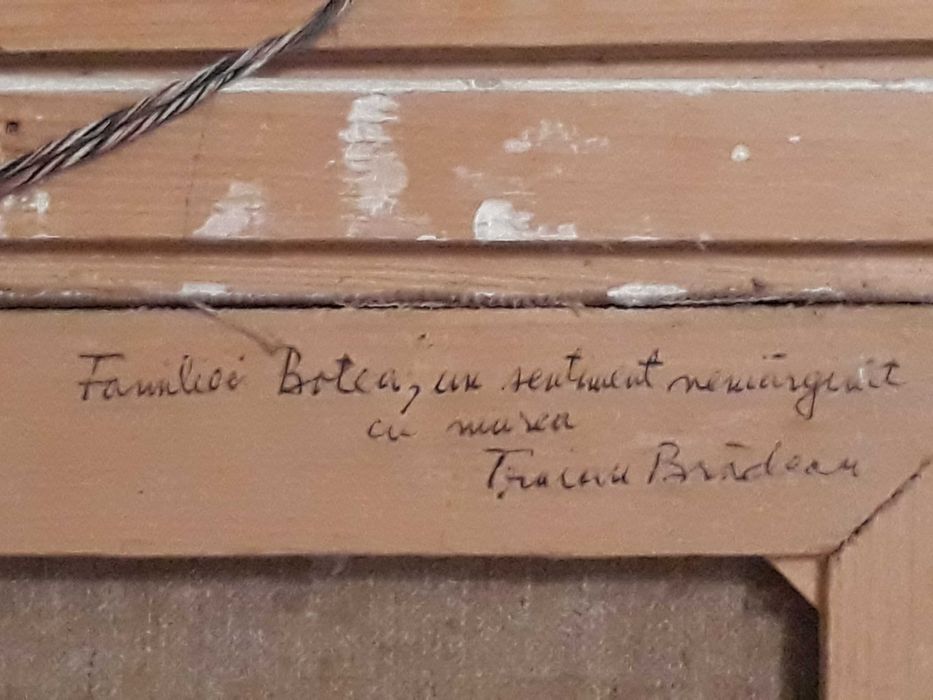 Familiei Botea, un sentiment nemărginit
cu marea
Traian Brădean